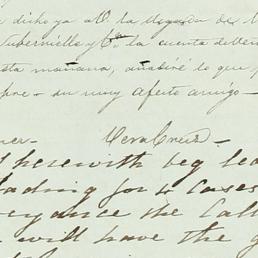 dicho ya a V. la llegada de
Tubernilles y Ca. la cuenta deber
sta mañana, añadiré lo que
pre - su muy afecto amigo -
Vera Cruz
I herewith beg lea
lading for 4 Cases
eyance the Call
will have the g